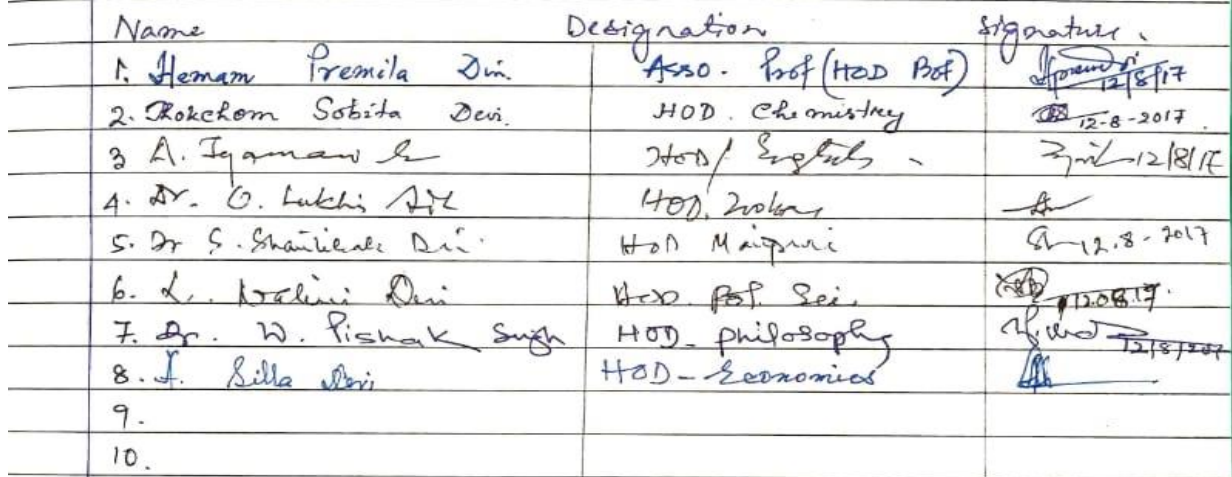 Name Designation Signature.
1. Hemam Premila Devi. Asso. Prof (HOD Bot) 12/8/17
2. Thokchom Sobita Devi. HOD. Chemistry 12-8-2017.
3 A. HOD/ English 12/8/17
4. Dr. O. HOD. Zoology
5. Dr S. Devi. HOD Manipuri 12.8-2017
6. L. Nalini Devi HOD. Pol. Sci. 12.08.17.
7. Dr. W. Pishak Singh HOD- philosophy 12/8/2017
8. Silla Devi HOD-Economics
9.
10.